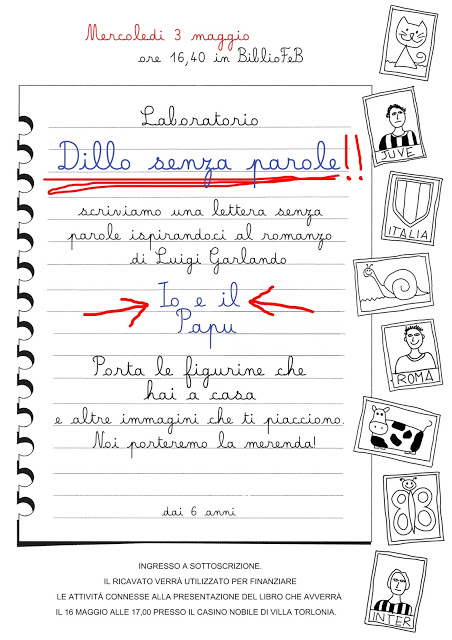 Mercoledì 3 maggio
ore 16,40 in BiblioFeB
Laboratorio
Dillo senza parole!!
scriviamo una lettera senza
parole ispirandoci al romanzo
di Luigi Garlando
Io e il
Papu
Porta le figurine che
hai a casa
e altre immagini che ti piacciono.
Noi porteremo la merenda!
dai 6 anni
JUVE
ITALIA
ROMA
INTER
INGRESSO A SOTTOSCRIZIONE.
IL RICAVATO VERRÀ UTILIZZATO PER FINANZIARE
LE ATTIVITÀ CONNESSE ALLA PRESENTAZIONE DEL LIBRO CHE AVVERRÀ
IL 16 MAGGIO ALLE 17,00 PRESSO IL CASINO NOBILE DI VILLA TORLONIA.